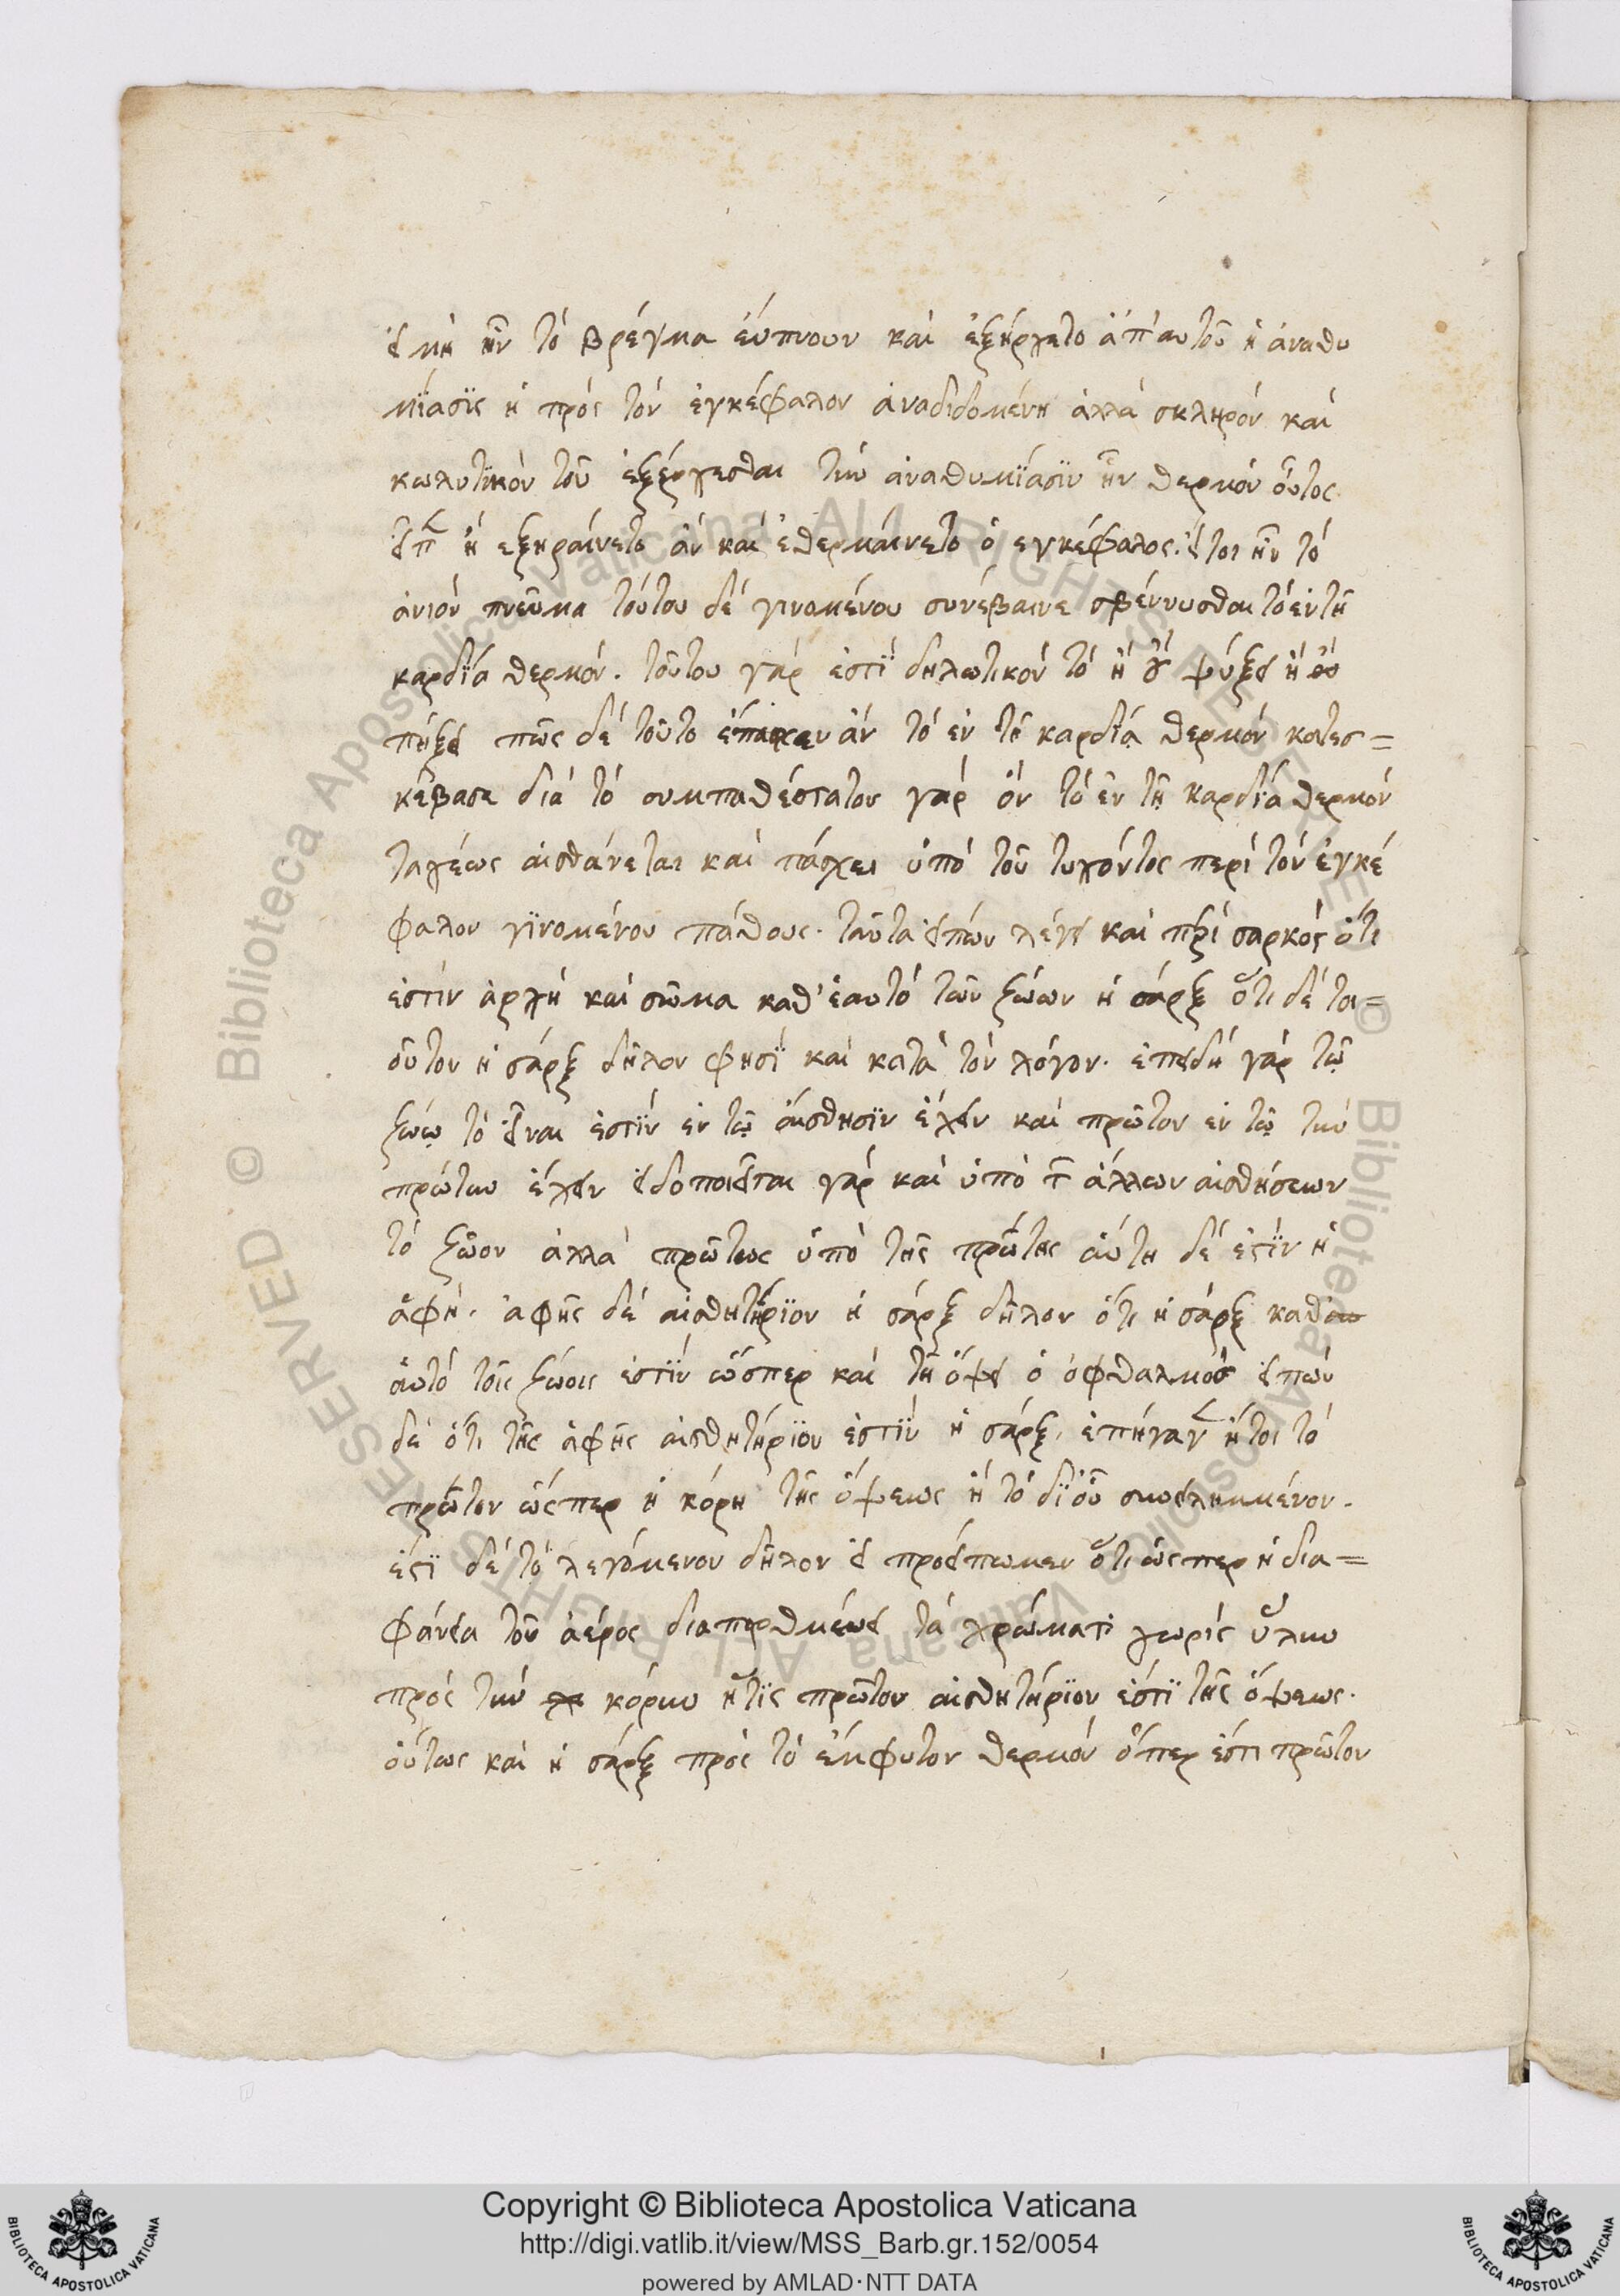 εἰ μὴ ἦν τὸ βρέγμα εὔπνουν καὶ ἐξήρχετο ἀπ' αυτοῦ ἡ ἀναθυ
μΐασϊς ἡ πρὸς τὸν ἐγκέφαλον ἀναδιδομένη ἀλλὰ σκληρὸν καὶ
κωλυτϊκὸν τοῦ ἐξέρχεσθαι τὴν ἀναθυμΐασϊν ἦν θερμὸν οὗτος
ἢ εξηραίνετο ἂν καὶ ἐθερμαίνετο ὁ εγκέφαλος. εἴτοι ἦν τὸ
ἀνιὸν πνεῦμα τούτου δὲ γινομένου συνέβαινε σβέννυσθαι τὸ ἐν τῆ
καρδΐα θερμόν. τοῦτου γάρ ἐστΐ δηλωτικόν τὸ ἢ οὐ ψύξει ἢ οὐ
πήξει πῶς δὲ τοῦτο ἔπασχεν ἂν τὸ ἐν τῆ καρδΐᾳ θερμὸν κατεσ=
κεύβασε διὰ τὸ συμπαθέστατον γὰρ ὂν τὸ ἐν τῇ καρδΐα θερμὸν
ταχέως αισθάνεται καὶ πάσχει ὑπὸ τοῦ τυχόντος περὶ τὸν ἐγκέ
φαλον γϊνομένου πάθους. ταῦτα εἰπὼν λέγει καὶ περὶ σαρκὸς ὅτι
ἐστὶν ἀρχὴ καὶ σῶμα καθ' ἑαυτὸ τῶν ζώων ἡ σάρξ ὅτι δὲ τοι=
οῦτον ἡ σάρξ δῆλον φησΐ καὶ κατὰ τὸν λόγον. ἐπειδὴ γὰρ τῷ
ζώῳ τὸ εἶναι ἐστΐν ἐν τῷ αἴσθησϊν ἔχειν καὶ πρῶτον ἐν τῷ τὴν
πρώτην ἔχειν εἰδοποιεῖται γὰρ καὶ ὑπὸ τῶν ἄλλων αἰσθήσεων
τὸ ζῶον ἀλλὰ πρώτως ὑπὸ τῆς πρώτης αὕτη δέ ἐστϊν ἡ
ἁφή. ἁφῆς δὲ αἰσθητήρϊον ἡ σάρξ δῆλον ὅτι ἡ σάρξ καθ
αὑτὸ τοῖς ζώοις ἐστΐν ὥσπερ καὶ τῆ ὄψει ὁ ὀφθαλμὸς εἰπὼν
δὲ ὅτι τῆς ἁφῆς αἰσθητήρϊον ἐστΐν ἡ σάρξ, ἐπήγαγεν ἤτοι τὸ
πρῶτον ὥσπερ ἡ κόρη τῆς ὄψεως ἢ τὸ δϊ οὗ συνειλημμένον.
ἔστϊ δὲ τὸ λεγόμενον δῆλον εἰ προείπωμεν ὅτι ὥσπερ ἡ δια=
φάνεια τοῦ ἀέρος διαπορθμεύει τὰ χρώματι χωρὶς ὕλην
πρὸς τὴν κόρην ἥτϊς πρῶτον αἰσθητήρϊον ἐστΐ τῆς ὄψεως.
οὕτως καὶ ἡ σάρξ πρὸς τὸ ἔμφυτον θερμὸν ὅπερ ἐστι πρῶτον
Copyright © Biblioteca Apostolica Vaticana
http://digi.vatlib.it/view/MSS_Barb.gr.152/0054
powered by AMLAD·NTT DATA